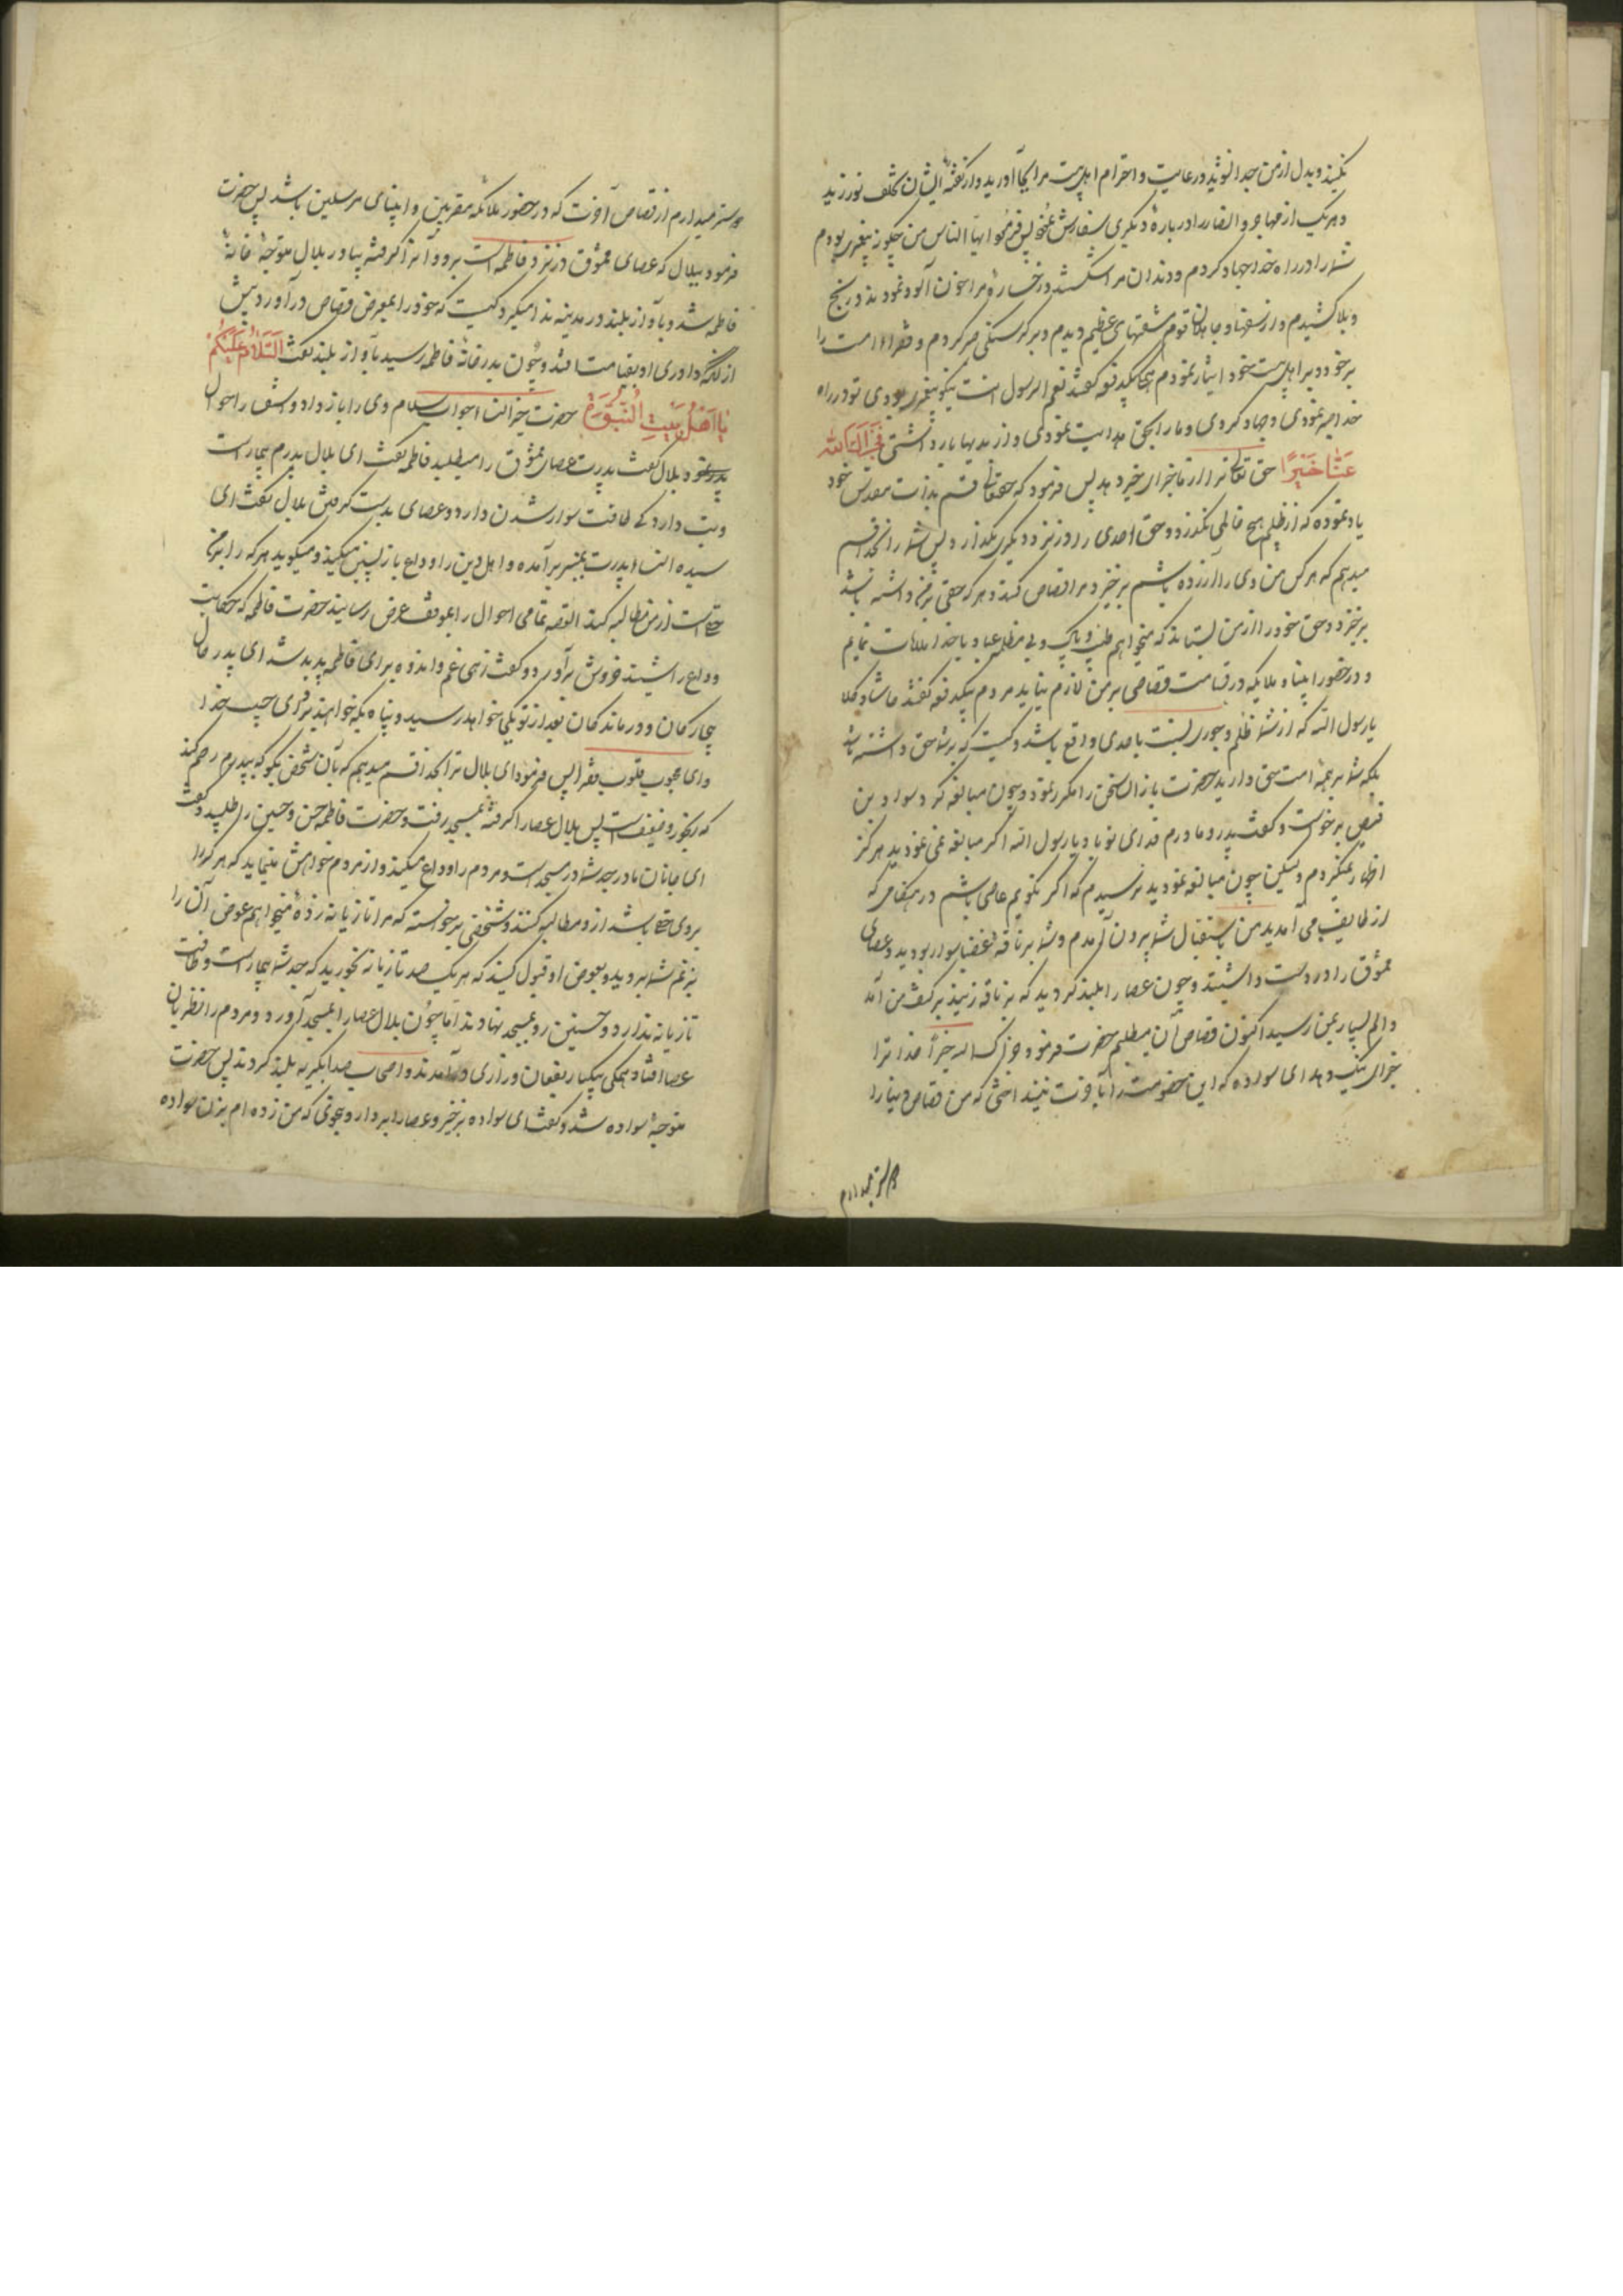 نکنید و بدل از من جدا نشوید و رعایت و احترام اهلبیت مرا بجا آورید و از گفتهٔ ایشان تخلف نورزید
و هر یک از مهاجر و انصار را در بارهٔ دیگری سفارش نمود پس فرمود ایها الناس من چگونه پیغمبری بودم
شما را در راه خدا جهاد کردم و دندان مرا شکستند و رخسارهٔ مرا خون آلود نمودند و رنج
و بلا کشیدم و از سفها و جاهلان قوم مشقتهای عظیم دیدم و بر گرسنگی صبر کردم و فقرا امت را
بر خود و بر اهلبیت خود ایثار نمودم همگی یکدفعه گفتند نعم یا رسول الله نیکو پیغمبری بودی تو در راه
خدا صبر نمودی و جهاد کردی و ما را بحق هدایت نمودی و از بدیها باز داشتی فجزاک الله
عنا خیرا حق تعالی ترا از ما جزای خیر دهد پس فرمود که حقتعالی قسم بذات مقدس خود
یاد نموده که از ظلم هیچ ظالمی نگذرد و حق احدی را در نزد دیگری نگذارد پس شما را بخدا قسم
میدهم که هر کس من وی را آزرده باشم برخیزد و مرا قصاص کند و هر که حقی بر من داشته باشد
برخیزد و حق خود را از من بستاند که میخواهم طیب و پاک و بی مظلمه عباد با خدا ملاقات نمایم
و در حضور انبیا و ملائکه در قیامت قصاصی بر من لازم نیاید مردم یکدفعه گفتند حاشا و کلا
یا رسول الله که از شما ظلم و جوری نسبت باحدی واقع باشد و کیست که بر شما حق داشته باشد
بلکه شما بر همهٔ امت حق دارید حضرت باز ان سخن را مکرر نمود و چون مبالغه کرد سوادة بن
قیس برخواست و گفت پدر و مادرم فدای تو باد یا رسول الله اگر مبالغه نمی نمودید هرگز
اظهار نمیکردم و لیکن چون مبالغه نمودید ترسیدم که اگر نگویم عاصی باشم در هنگامی که
از طایف می آمدید من باستقبال شما بیرون آمدم و شما بر ناقهٔ غضبا سوار بودید و عصای
ممشوق را در دست داشتید و چون عصا را بلند کردید که بر ناقه زنید بر کتف من آمد
و الم بسیار بمن رسید اکنون قصاص آن میطلبم حضرت فرمود جزاک الله خیرا خدا ترا
جزای نیک دهد ای سواده که این خصومت را بآخرت نینداختی که من قصاص دنیا را
دوستر میدارم
دوستر میدارم از قصاص آخرت که در حضور ملائکه مقربین و انبیای مرسلین باشد پس حضرت
فرمود ببلال که عصای ممشوق در نزد فاطمه است برو و آنرا گرفته بیاور بلال متوجهٔ خانهٔ
فاطمه شد و بآواز بلند در مدینه ندا میکرد کیست که خود را بمعرض قصاص در آورد پیش
از آنکه داوری او بقیامت افتد و چون بدر خانهٔ فاطمه رسید بآواز بلند گفت السلام علیکم
یا اهل بیت النبوة حضرت خیر النسا جواب سلام وی را باز داد و استفسار احوال
پدر نمود بلال گفت پدرت عصای ممشوق را میطلبد فاطمه گفت ای بلال پدرم بیمار است
و تب دارد کی طاقت سوار شدن دارد و عصای بدست گرفتن بلال گفت ای
سیدة النسا پدرت بمنبر برآمده و اهل دین را وداع بازپسین میکند و میگوید هر که را بر من
حقی است از من مطالبه کند القصه تمامی احوال را بموقف عرض رسانید حضرت فاطمه که حکایت
وداع را شنید خروش بر آورد و گفت زهی غم و اندوه برای فاطمه پدید شد ای پدر حال
بیچارگان و درماندگان بعد از تو بکی خواهد رسید و پناه بکه خواهند برد ای حبیب خدا
و ای محبوب قلوب فقرا پس فرمود ای بلال ترا بخدا قسم میدهم که بآن شخص بگو که بپدرم رحم کند
که رنجور و ضعیف است پس بلال عصا را گرفته بمسجد رفت و حضرت فاطمه حسن و حسین را طلبید و گفت
ای جانان مادر جد شما در مسجد است و مردم را وداع میکند و از مردم خواهش مینماید که هر که را
بر وی حقی باشد از او مطالبه کنند و شخصی برخواسته که مرا تازیانه زدهٔ میخواهم عوض آن را
بزنم شما بروید و بعوض او قبول کنید که هر یک صد تازیانه بخورید که جد شما بیمار است و طاقت
تازیانه ندارد و حسنین رو بمسجد نهادند اما چون بلال عصا را بمسجد آورد و مردم را نظر بآن
عصا افتاد همگی بیکبار بفغان و زاری در آمدند و اصحاب صدا بگریه بلند کردند پس حضرت
متوجهٔ سواده شد و گفت ای سواده برخیز و عصا را بردار و بنحوی که من زده ام بزن سواده